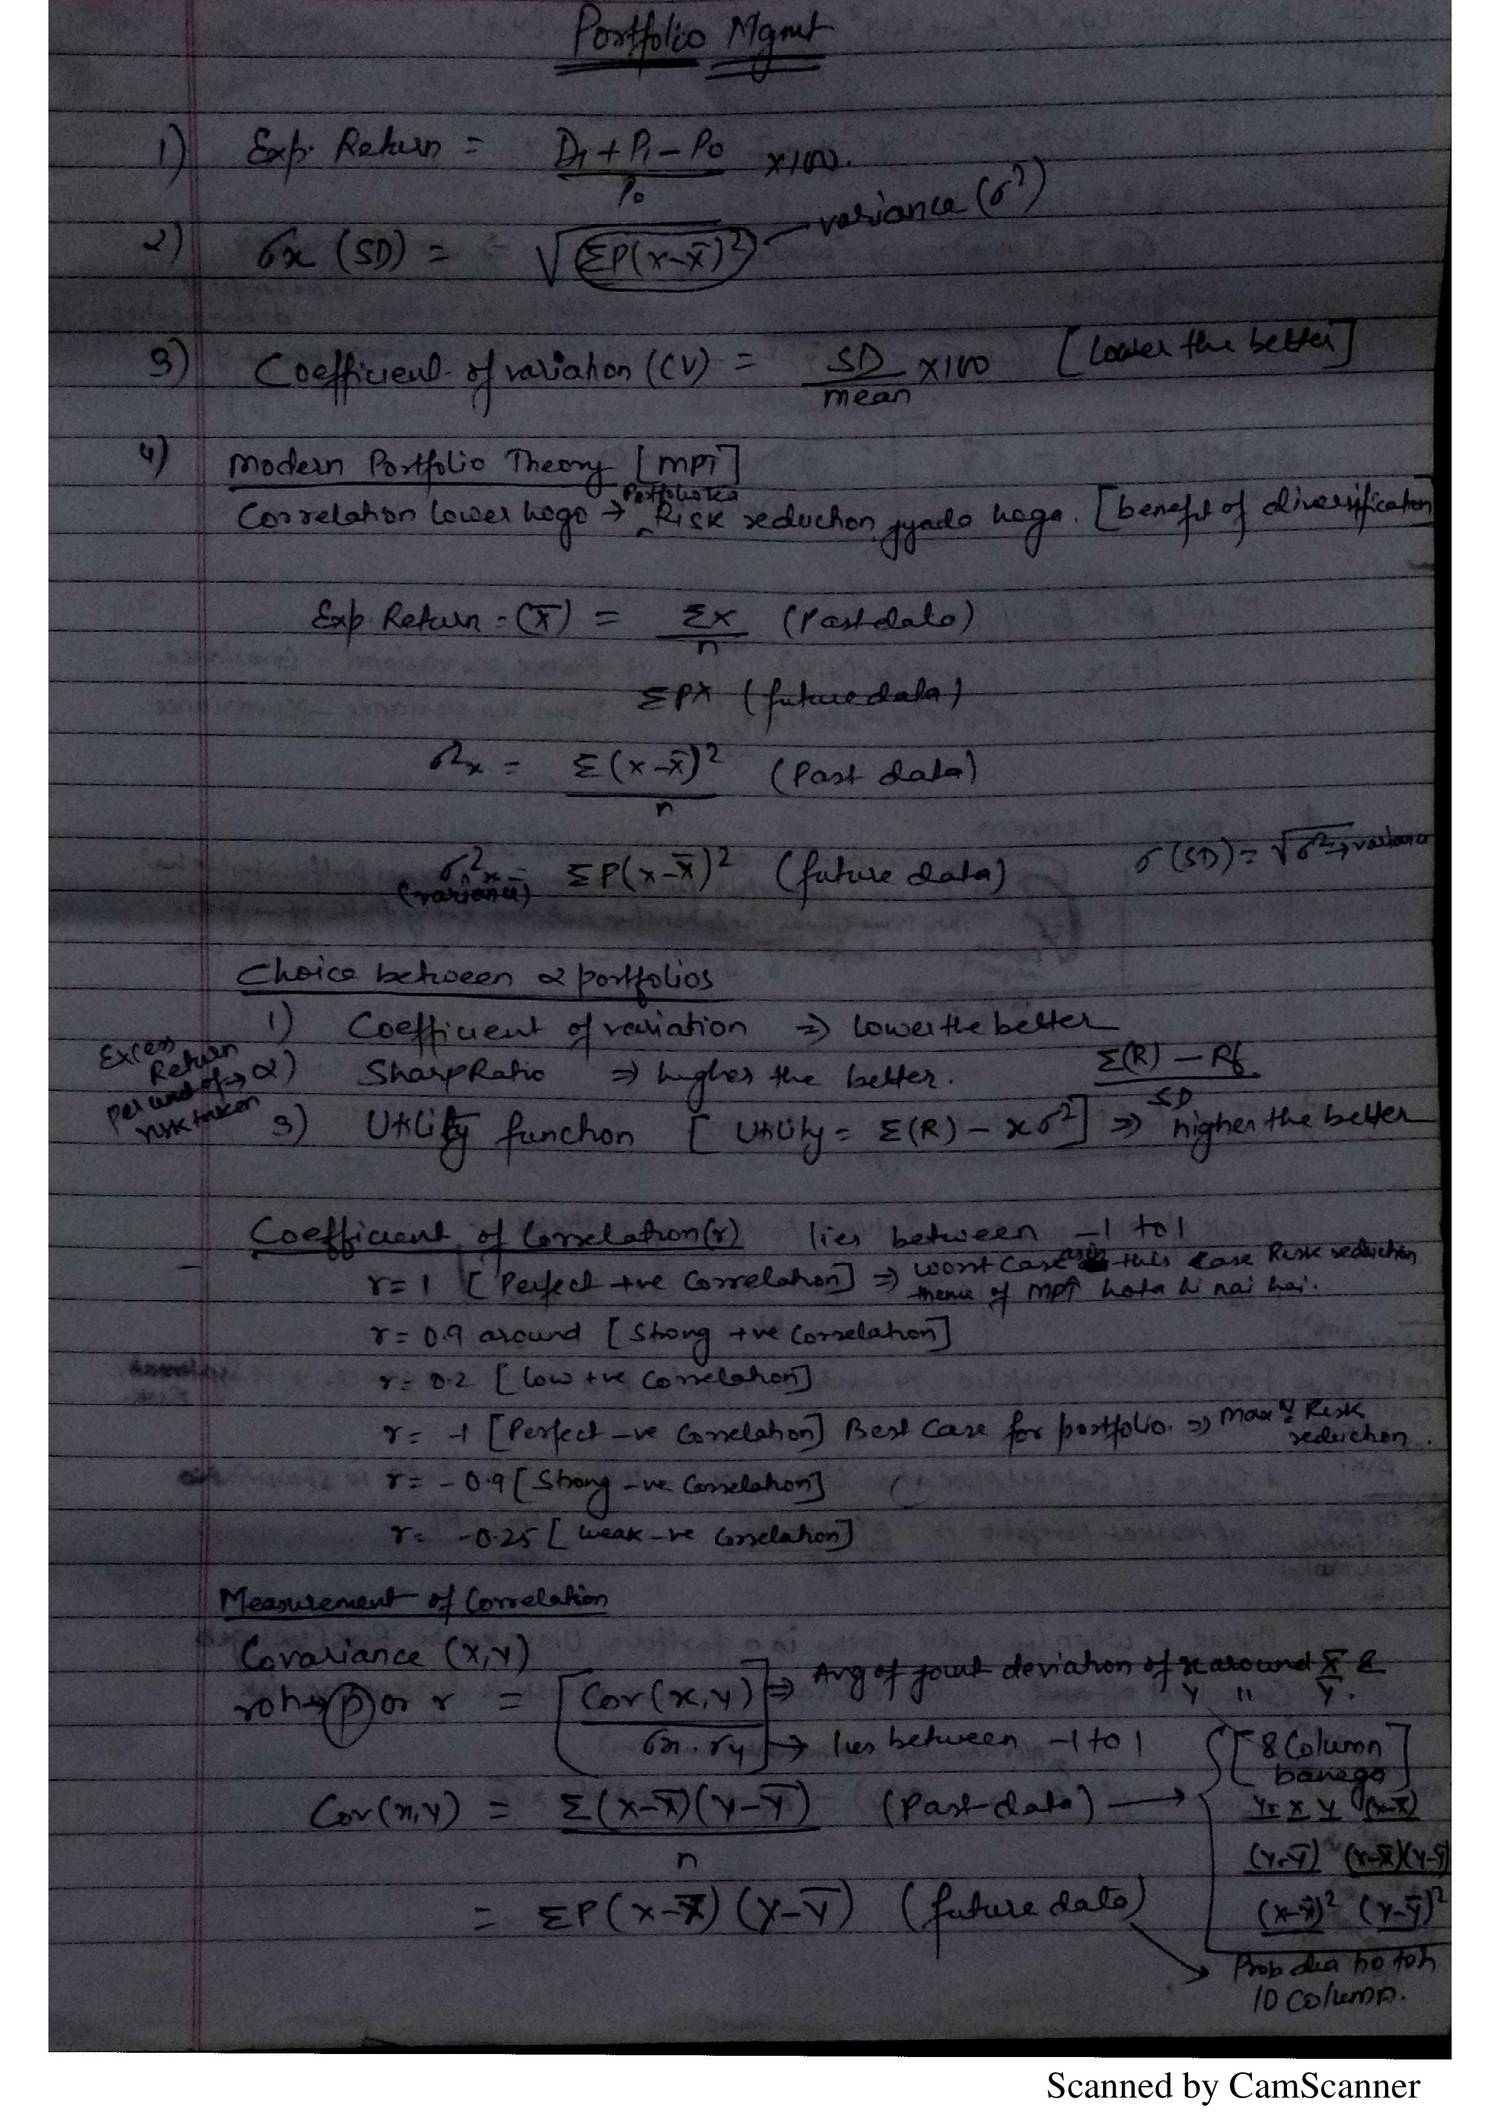 Portfolio Mgmt
1) Exp. Return = D1 + P1 - P0 / P0 x100.
2) σx (SD) = √ΣP(x-x̄)² variance (σ²)
3) Coefficient of variation (CV) = SD / mean x100 [Lower the better]
4) Modern Portfolio Theory [MPT]
Correlation lower hoga → Portfolio ka Risk reduction jyada hoga. [benefit of diversification]
Exp. Return = (x̄) = Σx / n (Past data)
ΣPX (future data)
σ²x = Σ(x-x̄)² / n (Past data)
σ²x = ΣP(x-x̄)² (future data) σ(SD) = √σ² → variance
(variance)
Choice between 2 portfolios
1) Coefficient of variation ⇒ Lower the better
Excess Return per unit of → risk taken
2) Sharp Ratio ⇒ higher the better. Σ(R) - Rf / SD
3) Utility function [Utility = Σ(R) - xσ²] ⇒ higher the better
Coefficient of Correlation(r) lies between -1 to 1
r = 1 [Perfect +ve Correlation] ⇒ worst case as in this case Risk reduction
theme of MPT hota hi nai hai.
r = 0.9 around [Strong +ve Correlation]
r = 0.2 [Low +ve Correlation]
r = -1 [Perfect -ve Correlation] Best Case for portfolio. ⇒ Maxm Risk
reduction.
r = -0.9 [Strong -ve Correlation]
r = -0.25 [weak -ve Correlation]
Measurement of Correlation
Covariance (x,y)
roh → (ρ) or r = [Cov(x,y) / σx.σy] ⇒ Avg of joint deviation of x around x̄ &
y " ȳ.
→ lies between -1 to 1
Cov(x,y) = Σ(x-x̄)(y-ȳ) / n (Past data) →
[8 Column
banega]
Yr x y (x-x̄)
(y-ȳ) (x-x̄)(y-ȳ)
(x-x̄)² (y-ȳ)²
= ΣP(x-x̄)(y-ȳ) (future data)
Prob dia ho toh
10 column.
Scanned by CamScanner